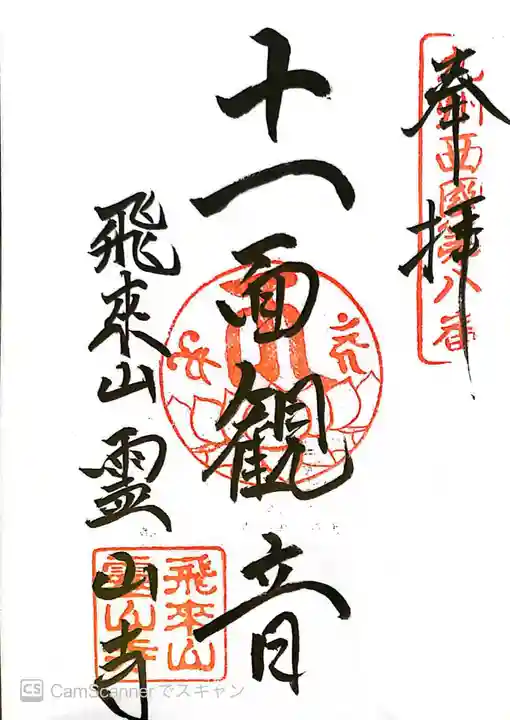 奉拝
九州西國第八番
十一面観音
飛來山霊山寺
飛來山
霊山寺
CS CamScannerでスキャン